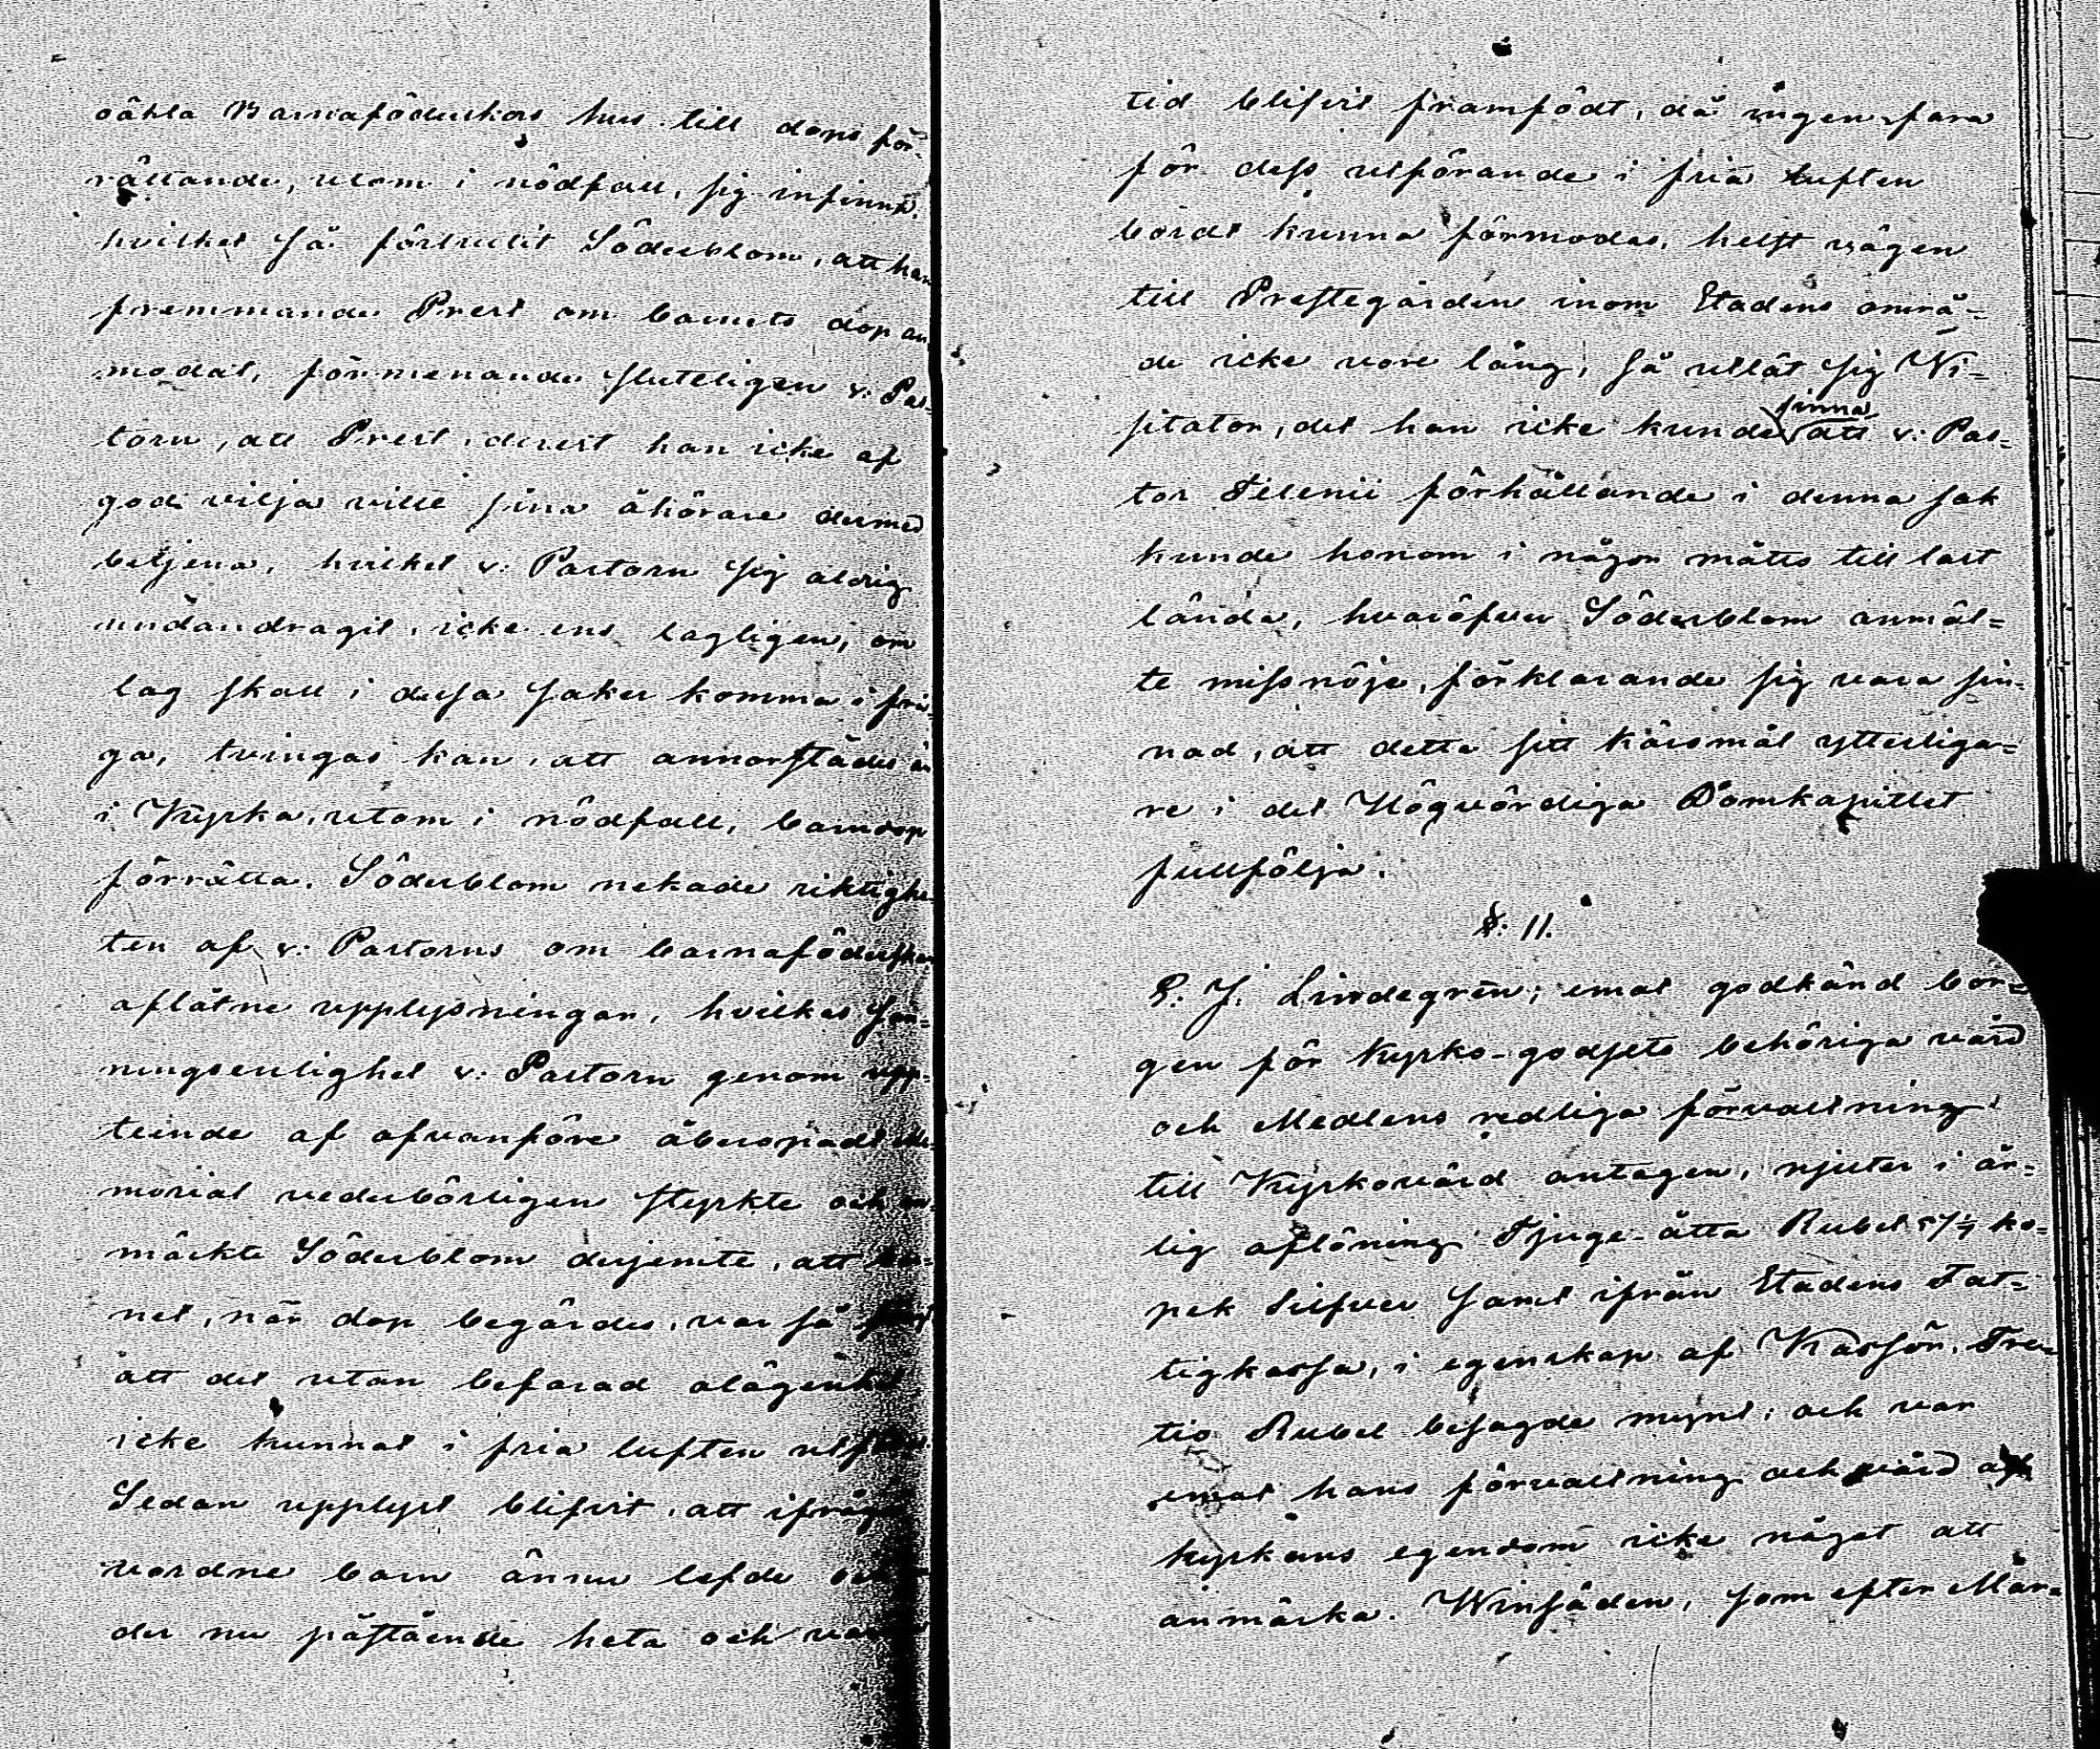 oäkta Barnaföderskors hus till dops för-
rättande, utom i nödfall, sig infinna,
hvilket så förtrutit Söderblom, att han
fremmande Prest om barnets dop an-
modat, förmenande sluteligen v: Pas-
torn, att Prest, derest han icke af
god vilja ville sina åhörare dermed
betjena, hvilket v: Pastorn sig aldrig
undandragit, icke ens lagligen, om
lag skall i dessa saker komma i frå-
ga, tvingas kan, att annorstädes än
i Kyrka, utom i nödfall, barndop
förrätta. Söderblom nekade riktighe-
ten af v: Pastorns om barnaföderskan
aflåtne upplysningar, hvilkas san-
ningsenlighet v: Pastorn genom upp-
teende af ofvanföre åberopadt Me-
morial vederbörligen styrkte och an-
märkte Söderblom derjemte, att bar-
net, när dop begärdes, var så
att det utan befarad olägenhet
icke kunnat i fria luften utföras.
Sedan upplyst blifvit, att ifråga
vordne barn ännu lefde och
der nu påstående heta och
tid blifvit framfödt, då ingen fara
för dess utförande i fria luften
bordt kunna förmodas, helst vägen
till Prestegården inom Stadens områ-
de icke vore lång; så utlät sig Vi-
sitator, det han icke kunde finna att v: Pas-
tor Tilenii förhållande i denna sak
kunde honom i någon måtto till last
lända, hvaröfver Söderblom anmäl-
te missnöje, förklarande sig vara sin-
nad, att detta sitt käromål ytterliga-
re i det Högvördiga Domkapitlet
fullfölja.
§: 11.
P. J. Lindegrén; emot godkänd bor-
gen för Kyrko-godsets behöriga vård
och Medlens redliga förvaltning
till Kyrkovärd antagen, njuter i år-
lig aflöning Tjuge-åtta Rubel 57 1/7 ko-
pek Silfver samt ifrån Stadens Fat-
tigkassa, i egenskap af Kassör, Tret-
tio Rubel besagde mynt; och var
emot hans förvaltning och vård af
kyrkans egendom icke något att
anmärka. Winsäden, som efter Mar-